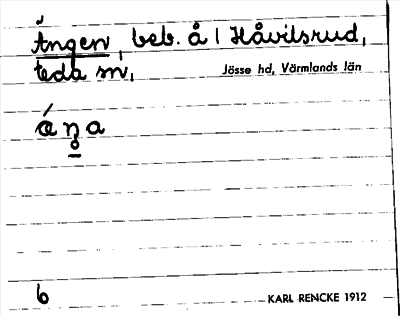 Ången, beb. å l Håvilsrud,
Eda sn, Jösse hd, Värmlands län
áŋ̊a
6 KARL RENCKE 1912